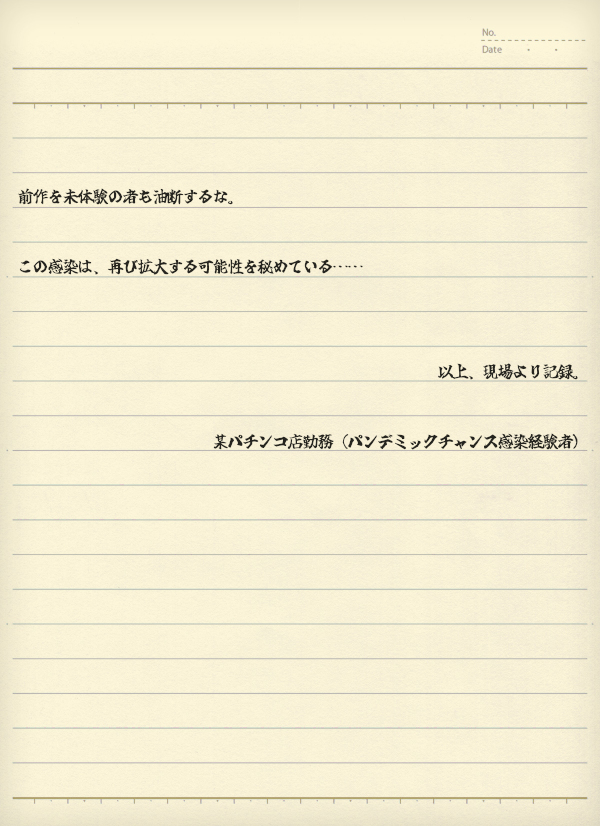 No.
Date ・ ・
前作を未体験の者も油断するな。
この感染は、再び拡大する可能性を秘めている……
以上、現場より記録。
某パチンコ店勤務（パンデミックチャンス感染経験者）